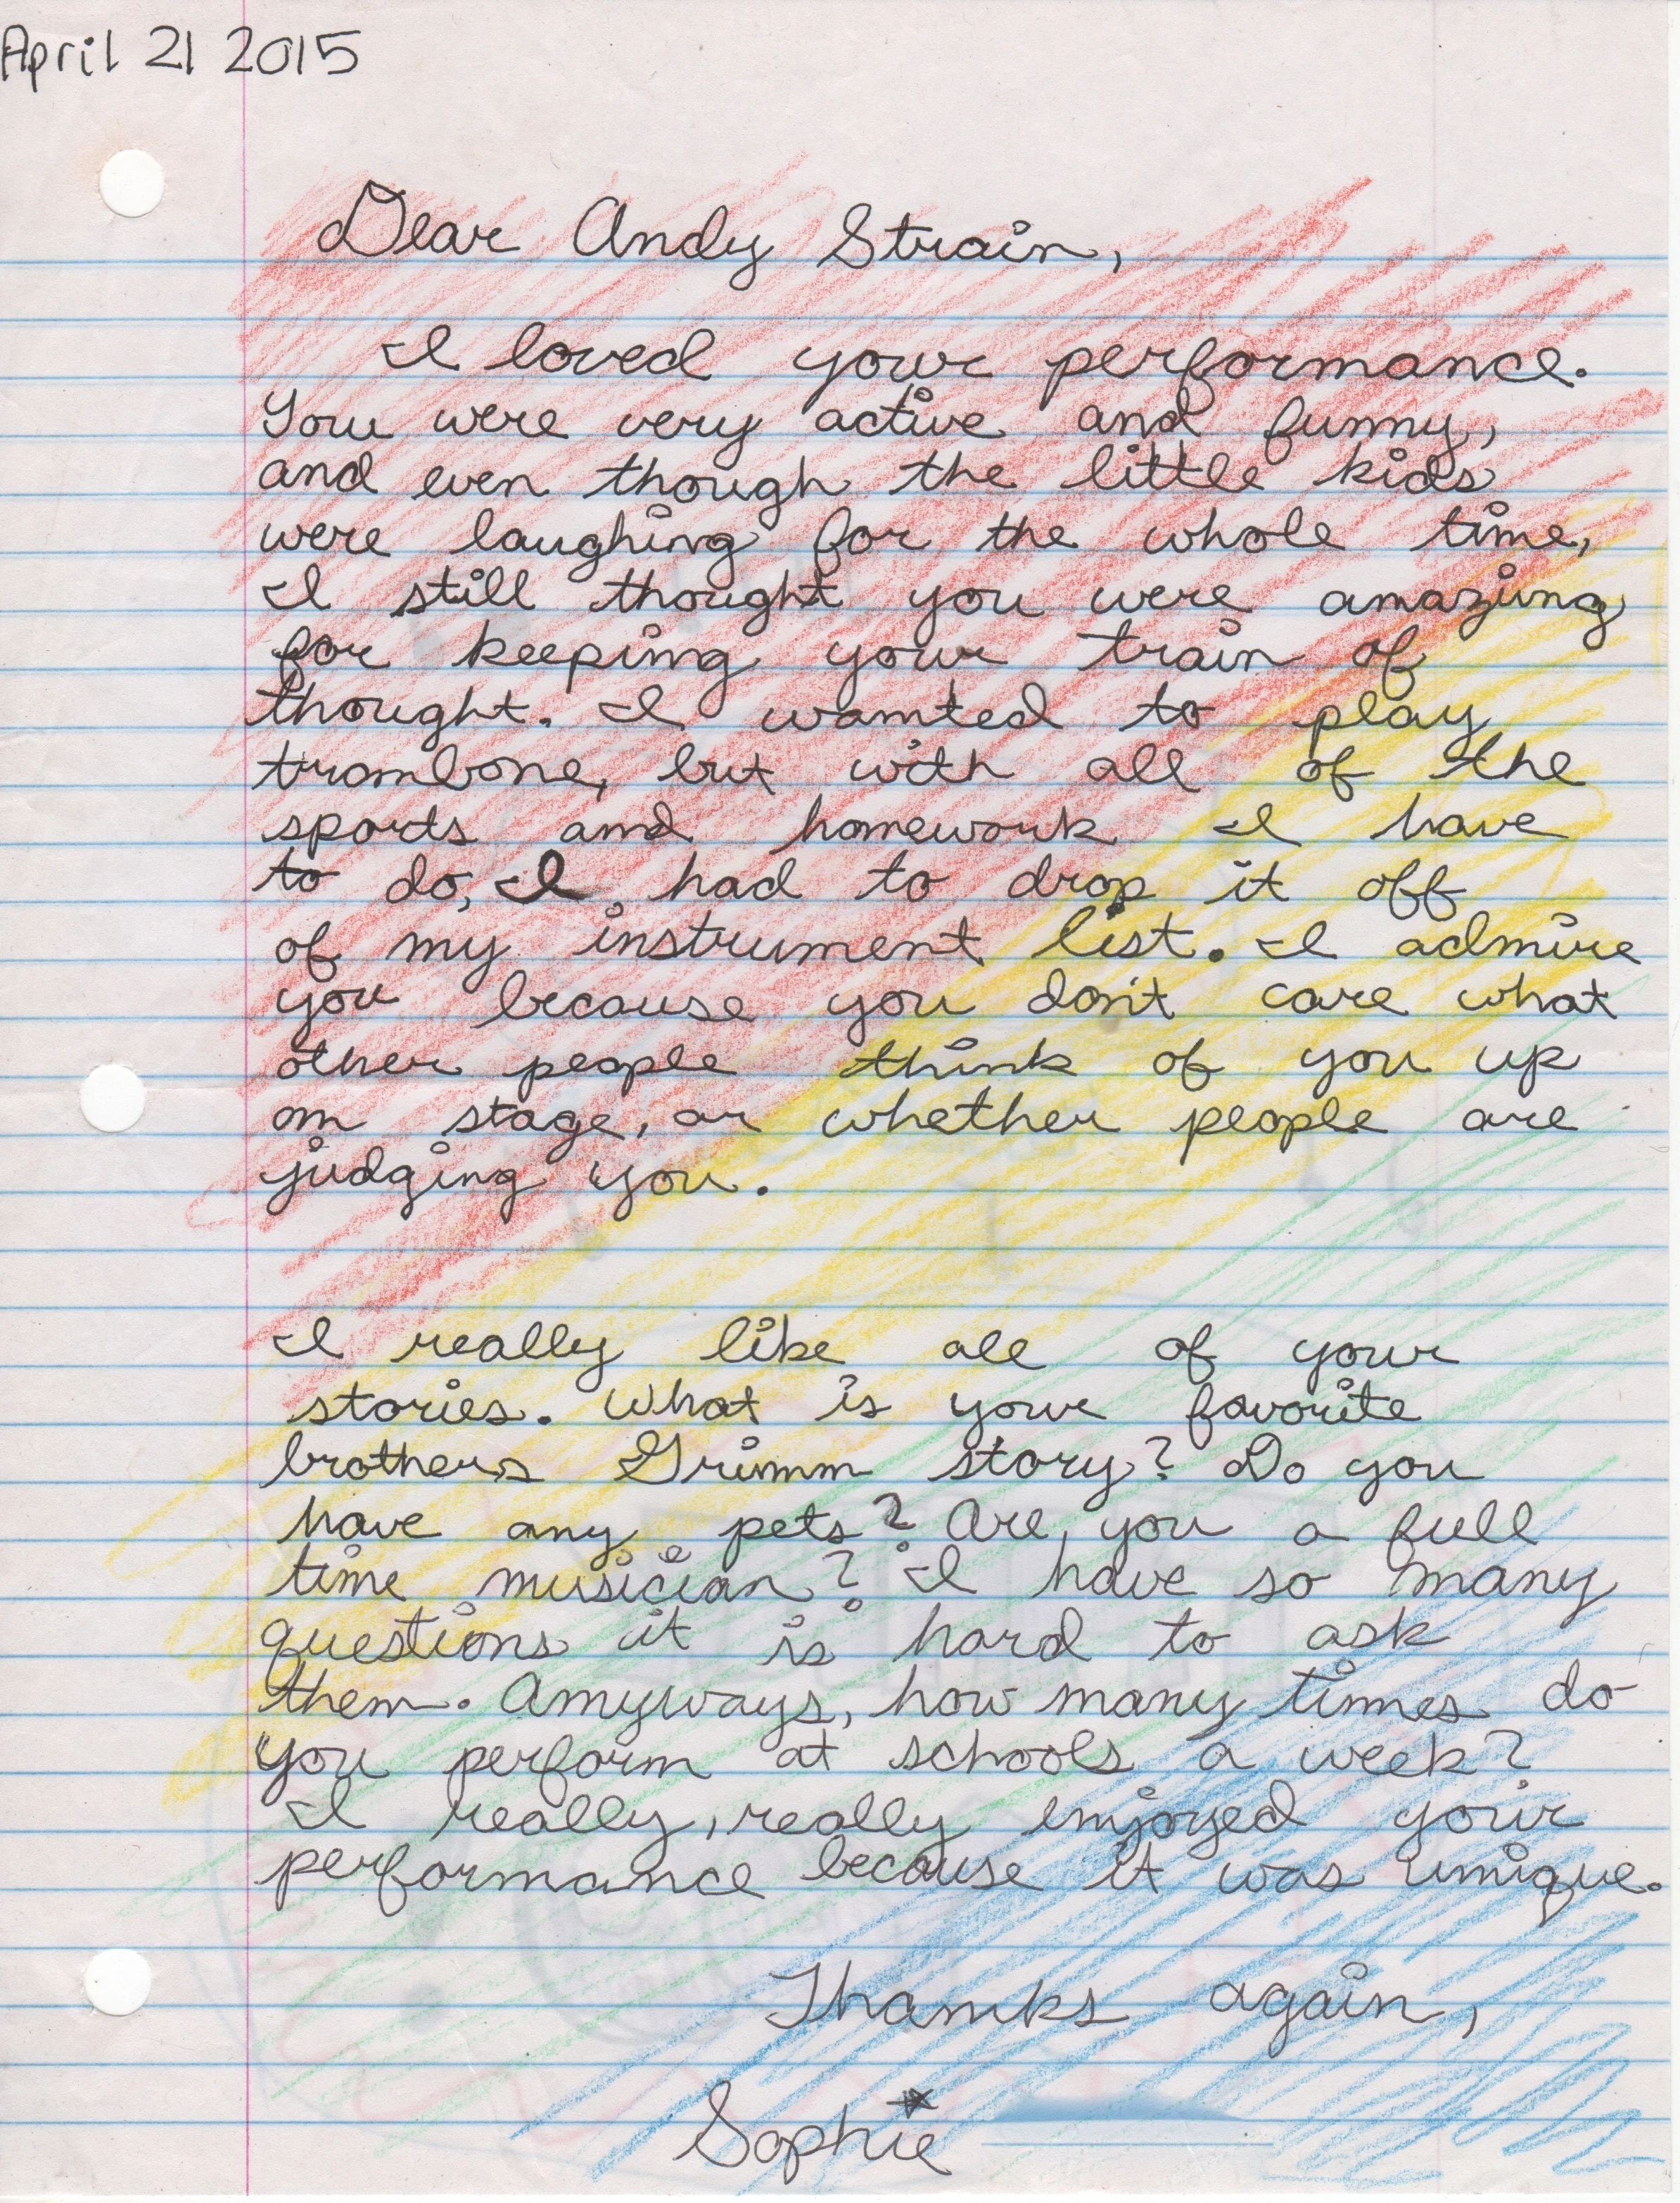 April 21 2015
Dear Andy Strain,
I loved your performance.
You were very active and funny,
and even though the little kids
were laughing for the whole time,
I still thought you were amazing
for keeping your train of
thought. I wanted to play
trombone, but with all of the
sports and homework I have
to do, I had to drop it off
of my instrument list. I admire
you because you don't care what
other people think of you up
on stage, or whether people are
judging you.
I really like all of your
stories. What is your favorite
brothers Grimm story? Do you
have any pets? Are you a full
time musician? I have so many
questions it is hard to ask
them. Anyways, how many times do
you perform at schools a week?
I really, really enjoyed your
performance because it was unique.
Thanks again,
Sophie